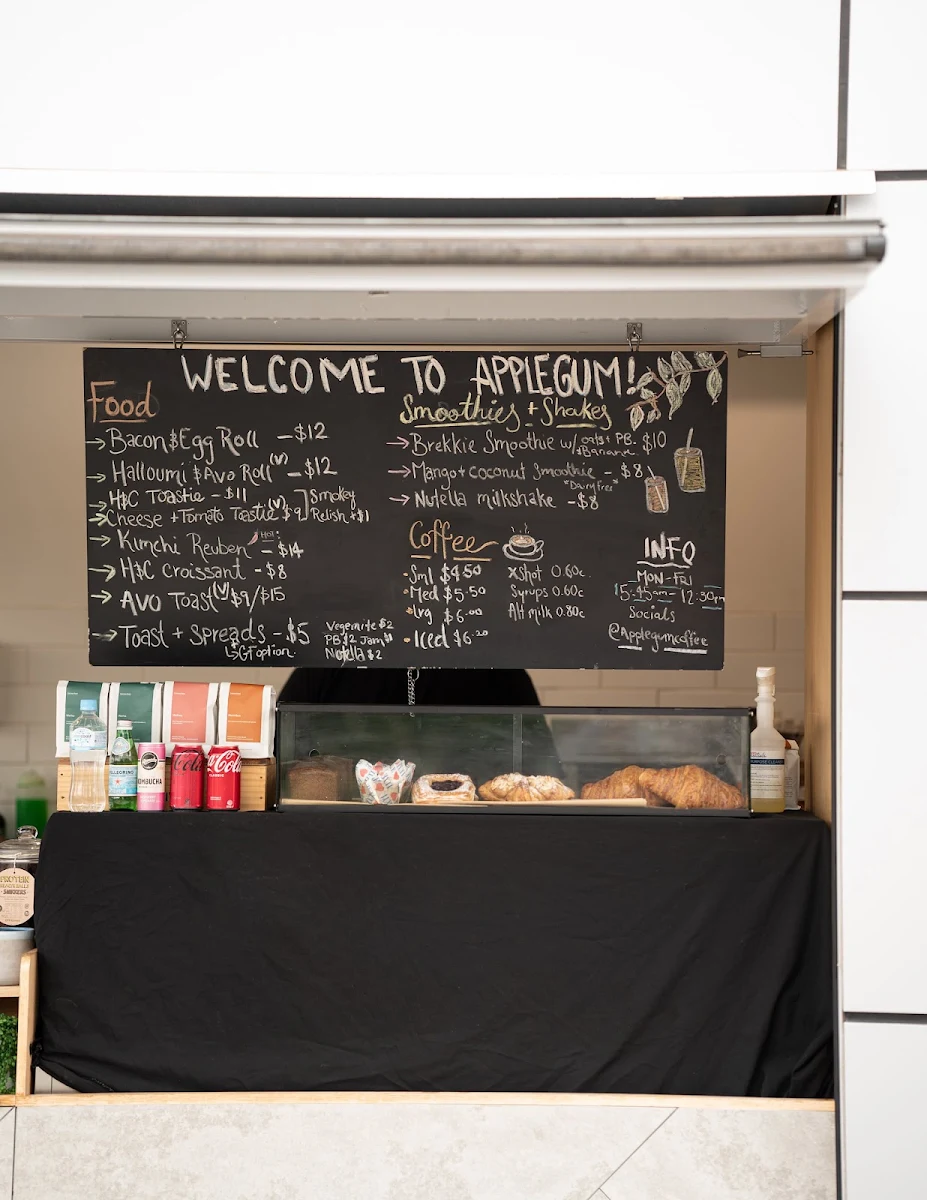 WELCOME TO APPLEGUM!
Food
→Bacon $ Egg Roll - $12
→Halloumi $ Avo Roll (V) - $12
→H$C Toastie - $11
→Cheese + Tomato Toastie (V) $9 ] Smokey Relish +$1
→Kimchi Reuben Hot! - $14
→H$C Croissant - $8
→Avo Toast (V) $9/$15
→Toast + Spreads - $5
↳GF option.
Vegemite $2
PB $2 Jam $1
Nutella $2
Smoothies + Shakes
→Brekkie Smoothie w/ oats + PB. $10
+Banana
→Mango + coconut smoothie - $8
*Dairy free*
→Nutella milkshake - $8
Coffee
Sml $4.50
Med $5.50
lrg $6.00
Iced $6.20
xShot 0.60c.
Syrups 0.60c
Alt milk 0.80c
INFO
MON-FRI
5:45am - 12:30pm
Socials
@Applegumcoffee
PELLEGRINO
KOMBUCHA
Coca-Cola
Coca-Cola
CLASSIC